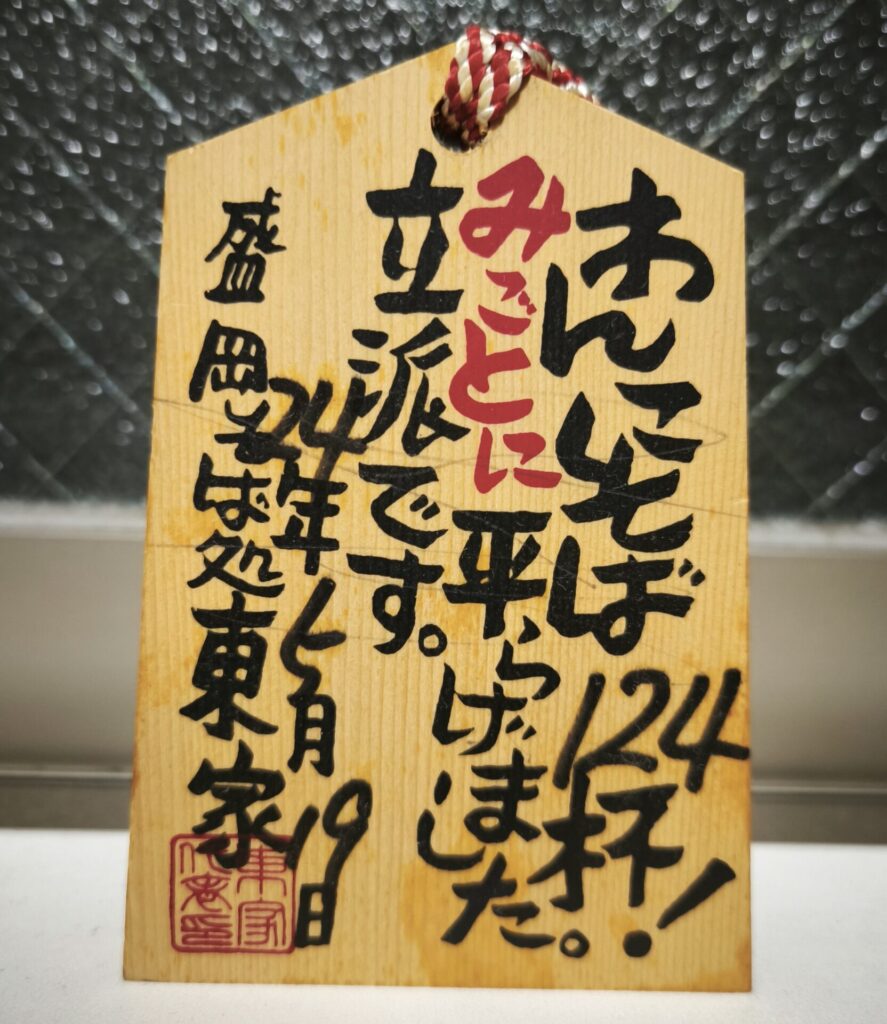 わんこそば124杯！
みごとに平らげました。
立派です。
24年七月19日
盛岡そば処東家
東家